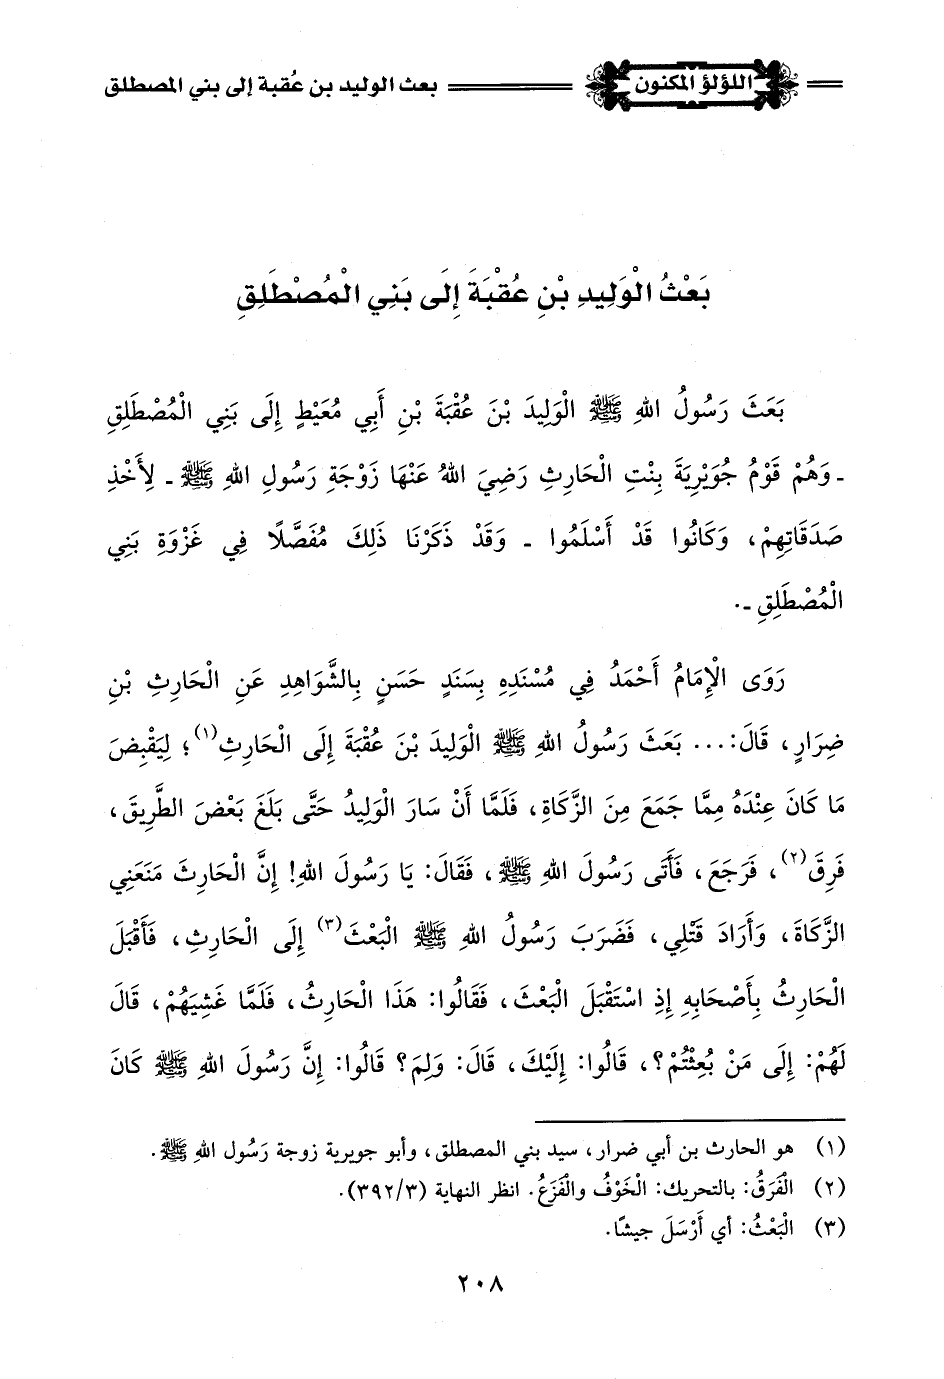 اللؤلؤ المكنون بعث الوليد بن عُقبة إلى بني المصطلق
بَعْثُ الْوَلِيدِ بْنِ عُقْبَةَ إِلَى بَنِي الْمُصْطَلِقِ
بَعَثَ رَسُولُ اللهِ ﷺ الْوَلِيدَ بْنَ عُقْبَةَ بْنِ أَبِي مُعَيْطٍ إِلَى بَنِي الْمُصْطَلِقِ
ـ وَهُمْ قَوْمُ جُوَيْرِيَةَ بِنْتِ الْحَارِثِ رَضِيَ اللهُ عَنْهَا زَوْجَةِ رَسُولِ اللهِ ﷺ ـ لِأَخْذِ
صَدَقَاتِهِمْ، وَكَانُوا قَدْ أَسْلَمُوا ـ وَقَدْ ذَكَرْنَا ذَلِكَ مُفَصَّلًا فِي غَزْوَةِ بَنِي
الْمُصْطَلِقِ ـ.
رَوَى الْإِمَامُ أَحْمَدُ فِي مُسْنَدِهِ بِسَنَدٍ حَسَنٍ بِالشَّوَاهِدِ عَنِ الْحَارِثِ بْنِ
ضِرَارٍ، قَالَ: ... بَعَثَ رَسُولُ اللهِ ﷺ الْوَلِيدَ بْنَ عُقْبَةَ إِلَى الْحَارِثِ(١)؛ لِيَقْبِضَ
مَا كَانَ عِنْدَهُ مِمَّا جَمَعَ مِنَ الزَّكَاةِ، فَلَمَّا أَنْ سَارَ الْوَلِيدُ حَتَّى بَلَغَ بَعْضَ الطَّرِيقَ،
فَرِقَ(٢)، فَرَجَعَ، فَأَتَى رَسُولَ اللهِ ﷺ، فَقَالَ: يَا رَسُولَ اللهِ! إِنَّ الْحَارِثَ مَنَعَنِي
الزَّكَاةَ، وَأَرَادَ قَتْلِي، فَضَرَبَ رَسُولُ اللهِ ﷺ الْبَعْثَ(٣) إِلَى الْحَارِثِ، فَأَقْبَلَ
الْحَارِثُ بِأَصْحَابِهِ إِذِ اسْتَقْبَلَ الْبَعْثَ، فَقَالُوا: هَذَا الْحَارِثُ، فَلَمَّا غَشِيَهُمْ، قَالَ
لَهُمْ: إِلَى مَنْ بُعِثْتُمْ؟، قَالُوا: إِلَيْكَ، قَالَ: وَلِمَ؟ قَالُوا: إِنَّ رَسُولَ اللهِ ﷺ كَانَ
(١) هو الحارث بن أبي ضرار، سيد بني المصطلق، وأبو جويرية زوجة رَسُول اللهِ ﷺ.
(٢) الْفَرَقُ: بالتحريك: الْخَوْفُ والْفَزَعُ. انظر النهاية (٣/٣٩٢).
(٣) الْبَعْثُ: أي أَرْسَلَ جيشًا.
٢٠٨